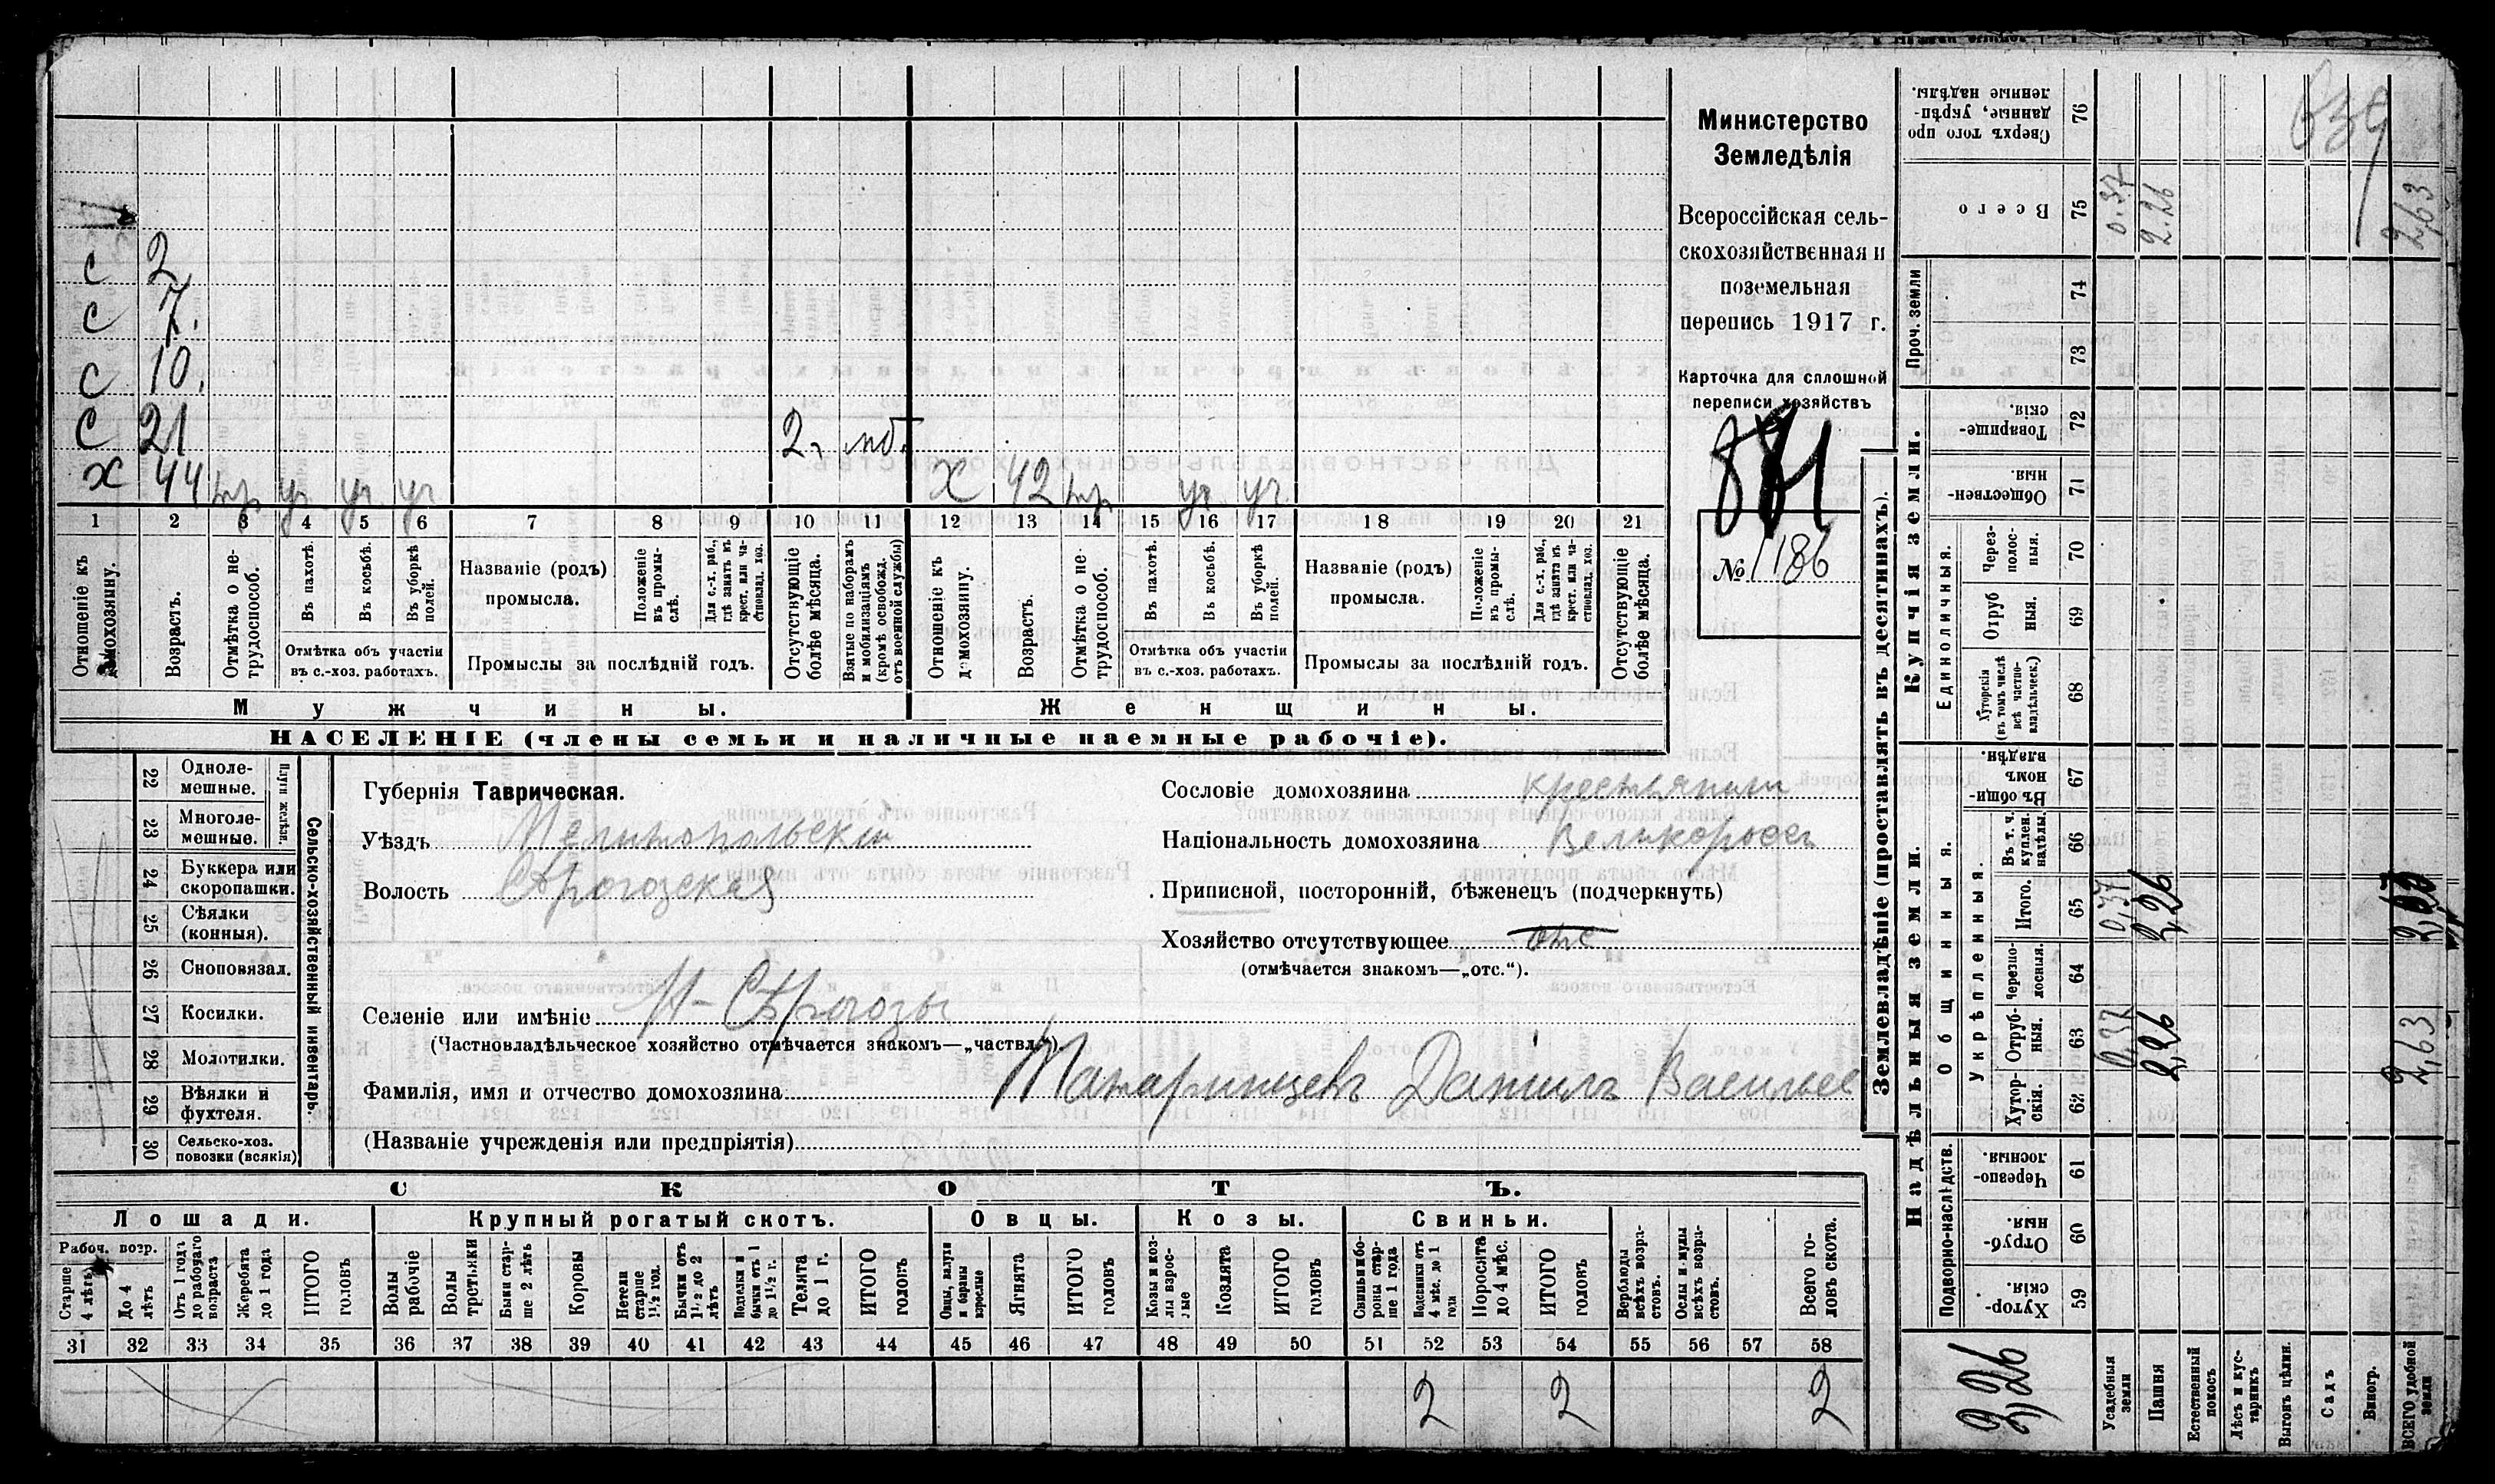 Министерство
Земледѣлія
Всероссійская сель-
скохозяйственная и
поземельная
перепись 1917 г.
Карточка для сплошной
переписи хозяйствъ
881
№ 1186
с 2
с 7.
с 10.
с 21 2, мб.
х 44 гр. уч уч уч х 42 гр. уч уч
1 2 3 4 5 6 7 8 9 10 11 12 13 14 15 16 17 18 19 20 21
Отношеніе къ домохозяину.
Возрастъ.
Отмѣтка о не-трудоспособ.
Въ пахотѣ.
Въ косьбѣ.
Въ уборкѣ полей.
Отмѣтка объ участіи
въ с.-хоз. работахъ.
Названіе (родъ)
промысла.
Положеніе въ промы-слѣ.
Для с.-х. раб., гдѣ занятъ въ крест. или ча-стновлад. хоз.
Промыслы за послѣдній годъ.
Отсутствующіе болѣе мѣсяца.
Взятые по наборамъ и мобилизаціямъ (кромѣ освобожд. отъ военной службы)
Отношеніе къ домохозяину.
Возрастъ.
Отмѣтка о не-трудоспособ.
Въ пахотѣ.
Въ косьбѣ.
Въ уборкѣ полей.
Отмѣтка объ участіи
въ с.-хоз. работахъ.
Названіе (родъ)
промысла.
Положеніе въ промы-слѣ.
Для с.-х. раб., гдѣ занята въ крест. или ча-стновлад. хоз.
Промыслы за послѣдній годъ.
Отсутствующіе болѣе мѣсяца.
Мужчины. Женщины.
НАСЕЛЕНІЕ (члены семьи и наличные наемные рабочіе).
22 Одноле-мешные.
23 Многоле-мешные.
Плуги желѣзн.
24 Буккера или скоропашки.
25 Сѣялки (конныя).
26 Сноповязал.
27 Косилки.
28 Молотилки.
29 Вѣялки и фухтеля.
30 Сельско-хоз. повозки (всякія)
Сельско-хозяйственный инвентарь.
Губернія Таврическая.
Уѣздъ Мелитопольскій
Волость Строгозская
Сословіе домохозяина крестьянинъ
Національность домохозяина Великороссъ
Приписной, посторонній, бѣженецъ (подчеркнуть)
Хозяйство отсутствующее отс
(отмѣчается знакомъ—„отс.“).
Селеніе или имѣніе Н-Строгозы
(Частновладѣльческое хозяйство отмѣчается знакомъ—„частвл.“)
Фамилія, имя и отчество домохозяина Татаринцевъ Данилъ Васильев
(Названіе учрежденія или предпріятія)
СКОТЪ.
Лошади. Крупный рогатый скотъ. Овцы. Козы. Свиньи.
Рабоч. возр.
Старше 4 лѣтъ
До 4 лѣтъ
Отъ 1 года до рабочаго возраста
Жеребята до 1 года
ИТОГО головъ
Волы рабочіе
Волы третьяки
Быки стар-ше 2 лѣтъ
Коровы
Нетели старше 1½ год.
Бычки отъ 1½ до 2 лѣтъ
Подтелки и бычки отъ 1 до 1½ г.
Телята до 1 г.
ИТОГО головъ
Овцы, валухи и бараны взрослые
Ягнята
ИТОГО головъ
Козы и коз-лы взрос-лые
Козлята
ИТОГО головъ
Свиньи и бо-роны стар-ше 1 года
Подсвинки отъ 4 мѣс. до 1 года
Поросята до 4 мѣс.
ИТОГО головъ
Верблюды всѣхъ возра-стовъ.
Ослы и мулы всѣхъ возра-стовъ.
Всего го-ловъ скота.
31 32 33 34 35 36 37 38 39 40 41 42 43 44 45 46 47 48 49 50 51 52 53 54 55 56 57 58
2 2 2
Землевладѣніе (проставлять въ десятинахъ).
Надѣльныя земли. Купчія земли.
Проч. земли
Подворно-наслѣдств.
Общинныя.
Укрѣпленныя.
Единоличныя.
59 Хутор-скія.
60 Отруб-ныя.
61 Черезпо-лосныя.
62 Хутор-скія.
63 Отруб-ныя. 0,37 2,26 2,63
64 Черезпо-лосныя.
65 Итого. 0,37 2,26
66 Въ т. ч. куплен. надѣлы.
67 Въ общи-номъ владѣн.
68 Хуторскія (въ томъ числѣ всѣ частно-владѣльческ.)
69 Отруб-ныя.
70 Через-полос-ныя.
71 Обществен-ныя
72 Товарище-скія.
73
74
75 Всего 0,37 2.26 2,63
76 Сверхъ того про-данные, укрѣп-ленные надѣлы.
639
Усадебныя земли
Пашня
Естественный покосъ
Лѣсъ и кус-тарникъ
Выгонъ цѣлин.
Садъ
Виногр.
ВСЕГО удобной земли